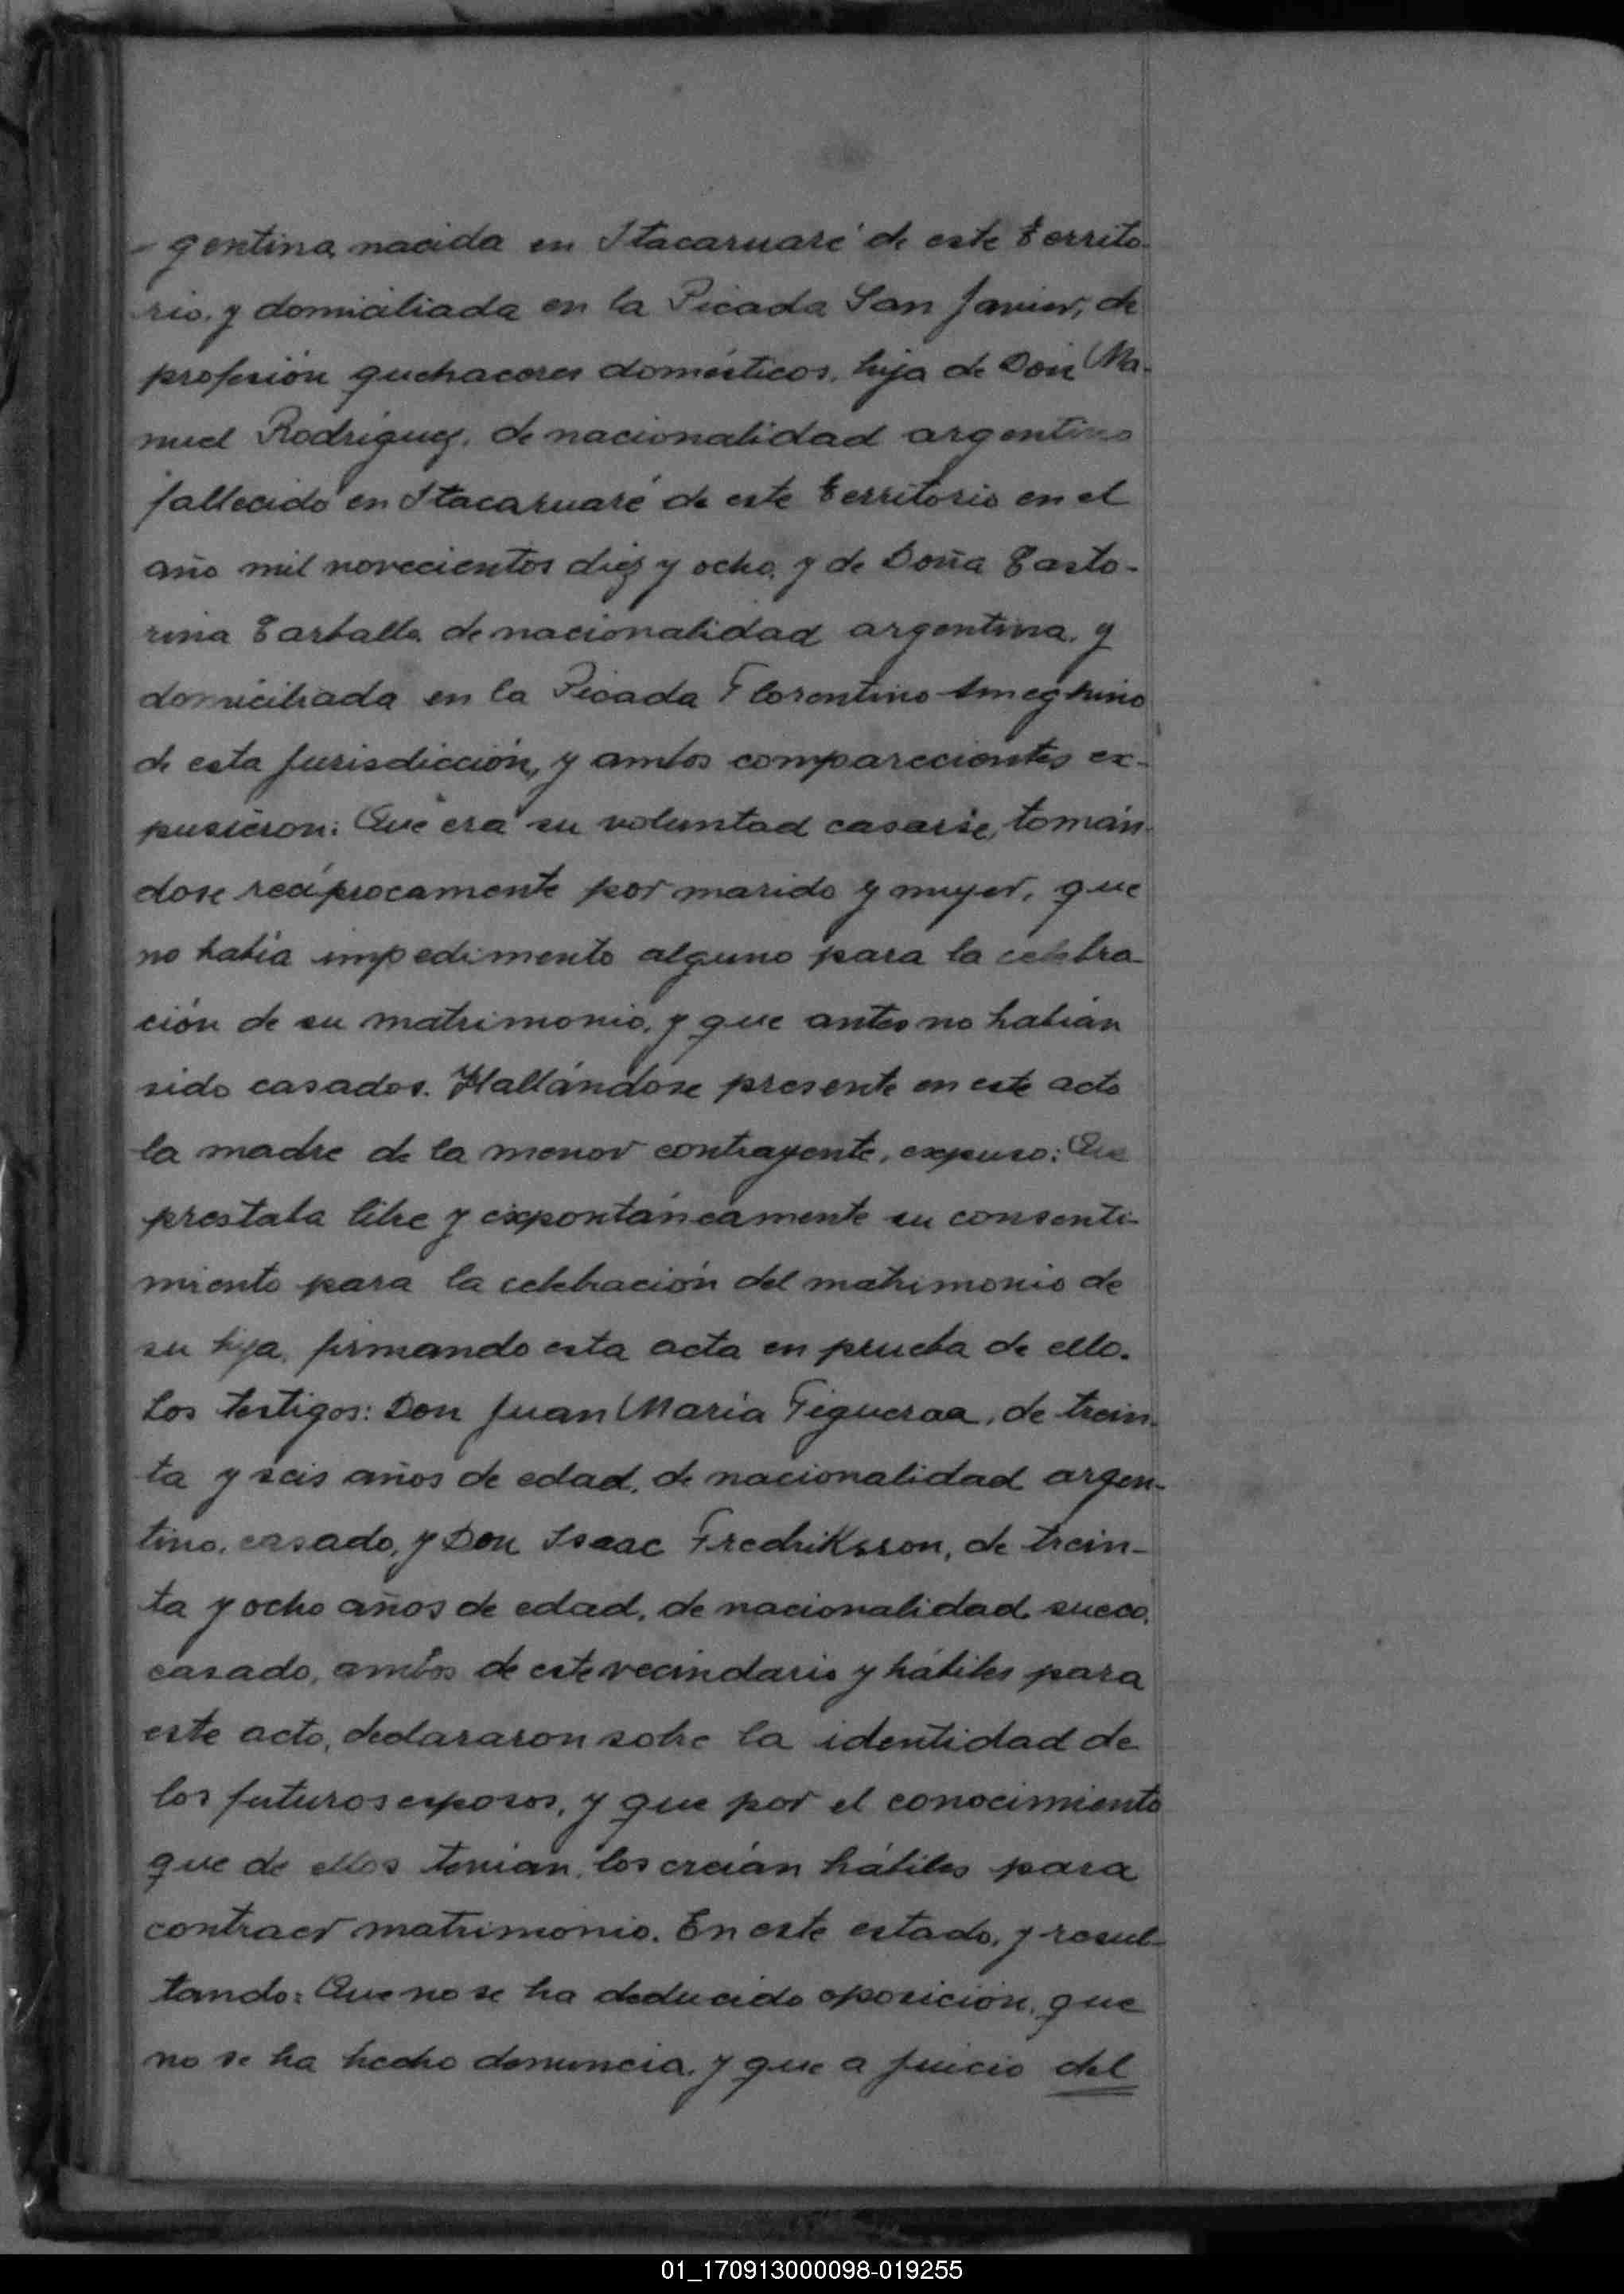 - gentina, nacida en Itacaruaré de este territo-
rio, y domiciliada en la Picada San Javier, de
profesión quehaceres domésticos, hija de Don Ma-
nuel Rodríguez, de nacionalidad argentino
fallecido en Itacaruaré de este territorio en el
año mil novecientos diez y ocho, y de Doña Pasto-
rina de nacionalidad argentina, y
domiciliada en la Picada Florentino Ameghino
de esta Jurisdicción, y ambos comparecientes ex-
pusieron: Que era su voluntad casarse, tomán-
dose recíprocamente por marido y mujer, que
no había impedimento alguno para la celebra-
ción de su matrimonio, y que antes no habían
sido casados. Hallándose presente en este acto
la madre de la menor contrayente, expuso: Que
prestaba libre y expontáneamente su consenti-
miento para la celebración del matrimonio de
su hija, firmando esta acta en prueba de ello.
Los testigos: Don Juan María Figueraa, de trein-
ta y seis años de edad, de nacionalidad argen-
tino, casado, y Don Isaac Fredriksson, de trein-
ta y ocho años de edad, de nacionalidad sueco,
casado, ambos de este vecindario y hábiles para
este acto, declararon sobre la identidad de
los futuros esposos, y que por el conocimiento
que de ellos tenían, los creían hábiles para
contraer matrimonio. En este estado, y resul-
tando: Que no se ha deducido oposición, que
no se ha hecho denuncia, y que a juicio del
01_170913000098-019255